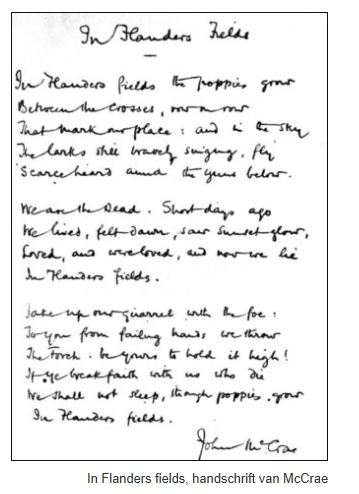 In Flanders Fields
In Flanders fields the poppies grow
Between the crosses, row on row
That mark our place: and in the sky
The larks still bravely singing, fly
Scarce heard amid the guns below.
We are the Dead. Short days ago
We lived, felt dawn, saw sunset glow,
Loved, and were loved, and now we lie
In Flanders fields.
Take up our quarrel with the foe:
To you from failing hands we throw
The torch: be yours to hold it high!
If ye break faith with us who die
We shall not sleep, though poppies grow
In Flanders fields.
John McCrae
In Flanders fields, handschrift van McCrae